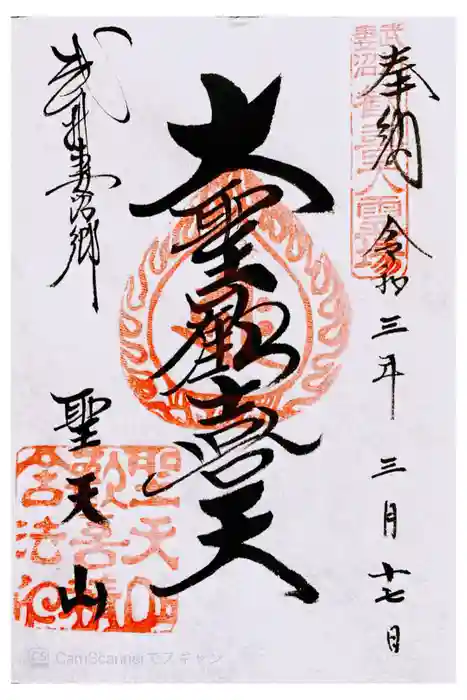 奉納 令和三年 三月十七日
大聖歓喜天
武州妻沼郷
聖天山
武州
妻沼
歓喜天霊場
聖天山
歓喜
CamScannerでスキャン